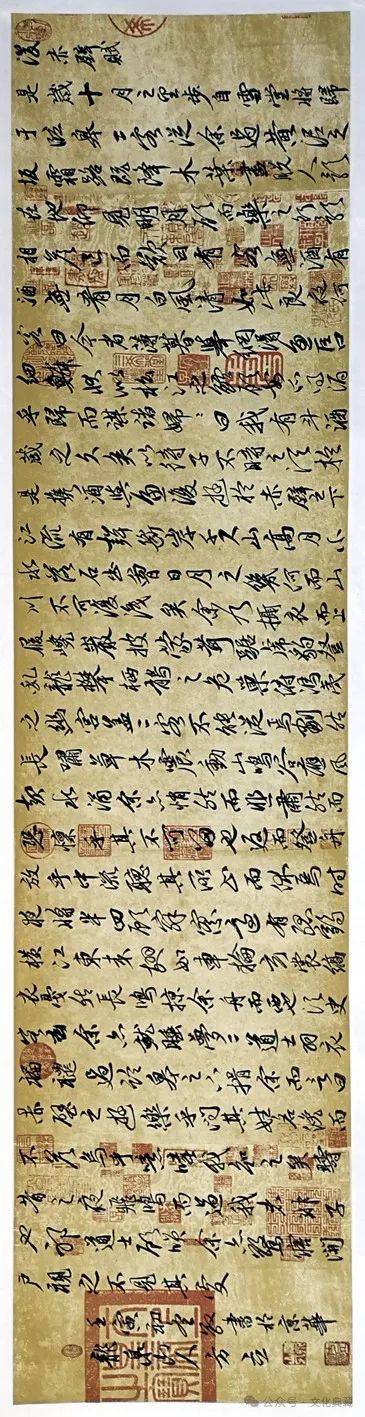 後赤壁賦
是歲十月之望步自雪堂將歸
于臨皋二客從余過黃泥之
坂霜露既降木葉盡脫人影
在地仰見明月顧而樂之行歌
相答已而歎曰有客無酒有
酒無肴月白風清如此良夜何
客曰今者薄暮舉網得魚巨口
細鱗狀似松江之鱸顧安所得酒
乎歸而謀諸婦〻曰我有斗酒
藏之久矣以待子不時之須於
是攜酒與魚復遊於赤壁之下
江流有聲斷岸千尺山高月小
水落石出曾日月之幾何而山
川不可復識矣余乃攝衣而上
履巉巖披蒙茸踞虎豹登
虬龍攀栖鶻之危巢俯馮夷
之幽宮蓋二客不能從焉劃然
長嘯草木震動山鳴谷應風
起水涌余亦悄然而悲肅然而
恐凜乎其不可留也返而登舟
放乎中流聽其所止而休焉時
夜將半四顧寂寥適有孤鶴
橫江東來翅如車輪玄裳縞
衣戛然長鳴掠余舟而西也須臾
客去余亦就睡夢二道士羽衣
翩躚過臨皋之下揖余而言曰
赤壁之遊樂乎問其姓名俛而
不答嗚呼噫嘻我知之矣疇
昔之夜飛鳴而過我者非子
也邪道士顧笑余亦驚悟開
戶視之不見其處
壬寅初冬敬書於京華
公众号 · 文化典藏